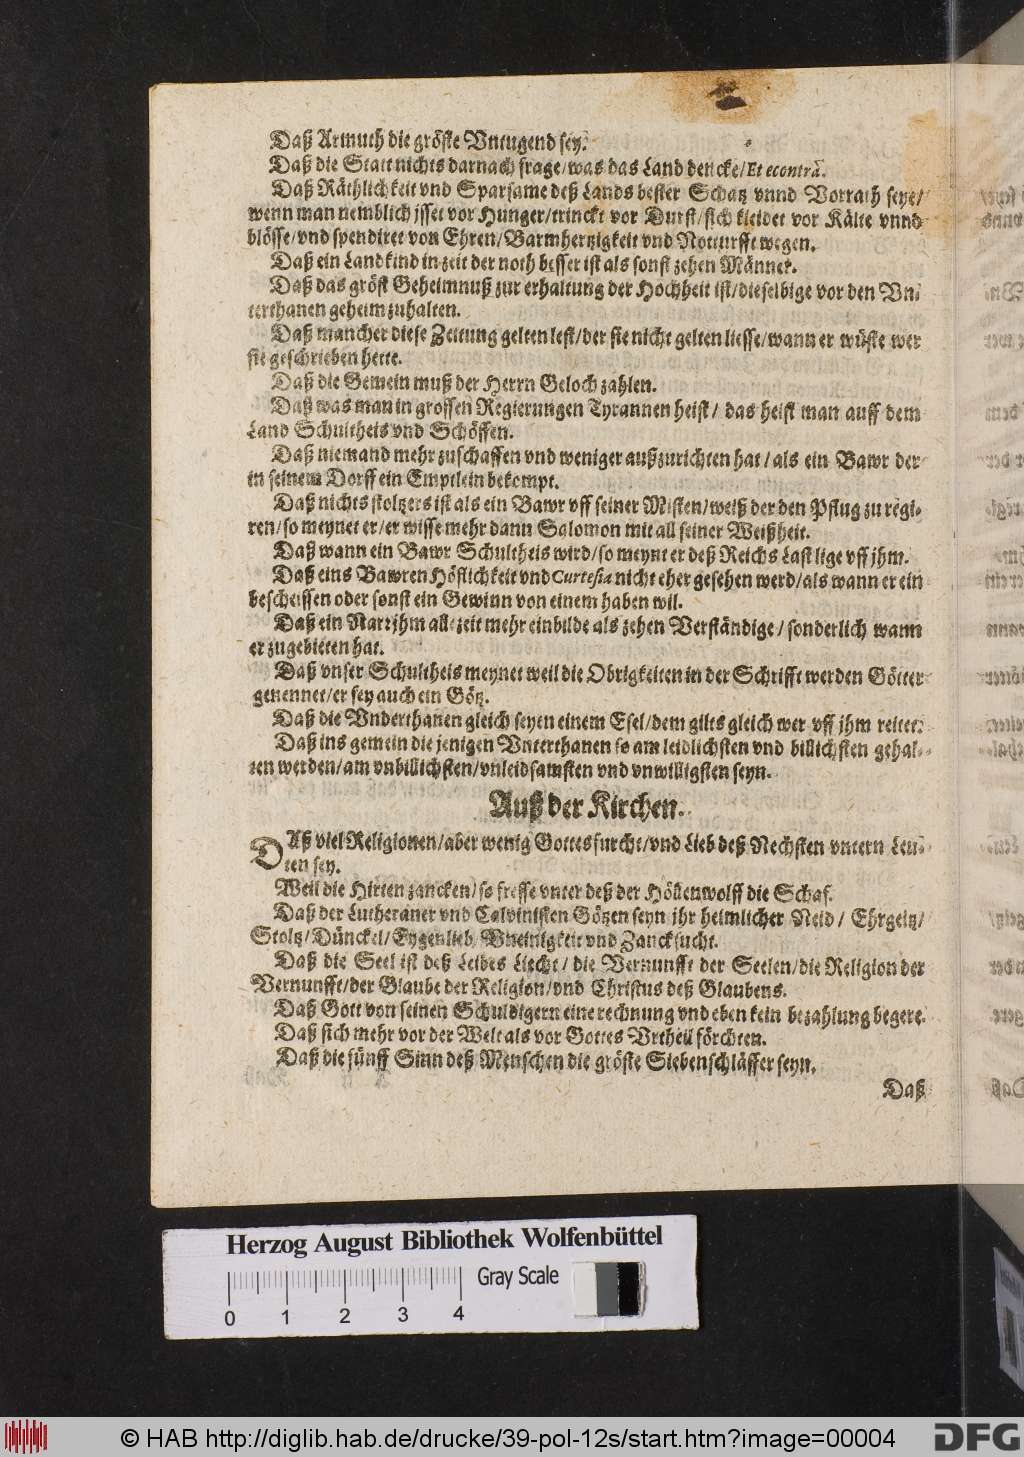 Daß Armuth die gröste Vntugend sey.
Daß die Statt nichts darnach frage/was das Land dencke/Et econtrà.
Daß Räthlichkeit vnd Sparsame deß Lands bester Schatz vnnd Vorrath seye/
wenn man nemblich isset vor Hunger/trinckt vor Durst/sich kleidet vor Kälte vnnd
blösse/vnd spendiret von Ehren/Barmhertzigkeit vnd Notturfft wegen.
Daß ein Landkind in zeit der noth besser ist als sonst zehen Männer.
Daß das gröst Geheimnuß zur erhaltung der Hochheit ist/dieselbige vor den Vn-
terthanen geheim zuhalten.
Daß mancher diese Zeitung gelten lest/der sie nicht gelten liesse/wann er wüste wer
sie geschrieben hette.
Daß die Gemein muß der Herrn Geloch zahlen.
Daß was man in grossen Regierungen Tyrannen heist/ das heist man auff dem
Land Schultheis vnd Schöffen.
Daß niemand mehr zuschaffen vnd weniger außzurichten hat/als ein Bawr der
in seinem Dorff ein Emptlein bekompt.
Daß nichts stoltzers ist als ein Bawr vff seiner Misten/weiß der den Pflug zu regi-
ren/so meynet er/er wisse mehr dann Salomon mit all seiner Weißheit.
Daß wann ein Bawr Schultheis wird/so meynt er deß Reichs Last lige vff jhm.
Daß eins Bawren Höflichkeit vnd Curtesia nicht eher gesehen werd/als wann er ein
bescheissen oder sonst ein Gewinn von einem haben wil.
Daß ein Narr jhm allezeit mehr einbilde als zehen Verständige/sonderlich wann
er zugebieten hat.
Daß vnser Schultheis meynet weil die Obrigkeiten in der Schrifft werden Götter
genennet/er sey auch ein Götz.
Daß die Vnderthanen gleich seyen einem Esel/dem gilts gleich wer vff jhm reitet.
Daß ins gemein die jenigen Vnterthanen so am leidlichsten vnd billichsten gehal-
ten werden/am vnbillichsten/vnleidsamsten vnd vnwilligsten seyn.
Auß der Kirchen.
DAß viel Religionen/aber wenig Gottesfurcht/vnd Lieb deß Nechsten vntern Leu-
ten sey.
Weil die Hirten zancken/so fresse vnter deß der Höllenwolff die Schaf.
Daß der Lutheraner vnd Calvinisten Götzen seyn jhr heimlicher Neid/ Ehrgeitz/
Stoltz/Dünckel/Eygenlieb/Vneinigkeit vnd Zancksucht.
Daß die Seel ist deß Leibes Liecht/die Vernunfft der Seelen/die Religion der
Vernunfft/der Glaube der Religion/vnd Christus deß Glaubens.
Daß Gott von seinen Schuldigern eine rechnung vnd eben kein bezahlung begere.
Daß sich mehr vor der Welt als vor Gottes Vrtheil förchten.
Daß die fünff Sinn deß Menschen die gröste Siebenschläffer seyn.
Daß
Herzog August Bibliothek Wolfenbüttel
Gray Scale
0 1 2 3 4
© HAB http://diglib.hab.de/drucke/39-pol-12s/start.htm?image=00004
DFG